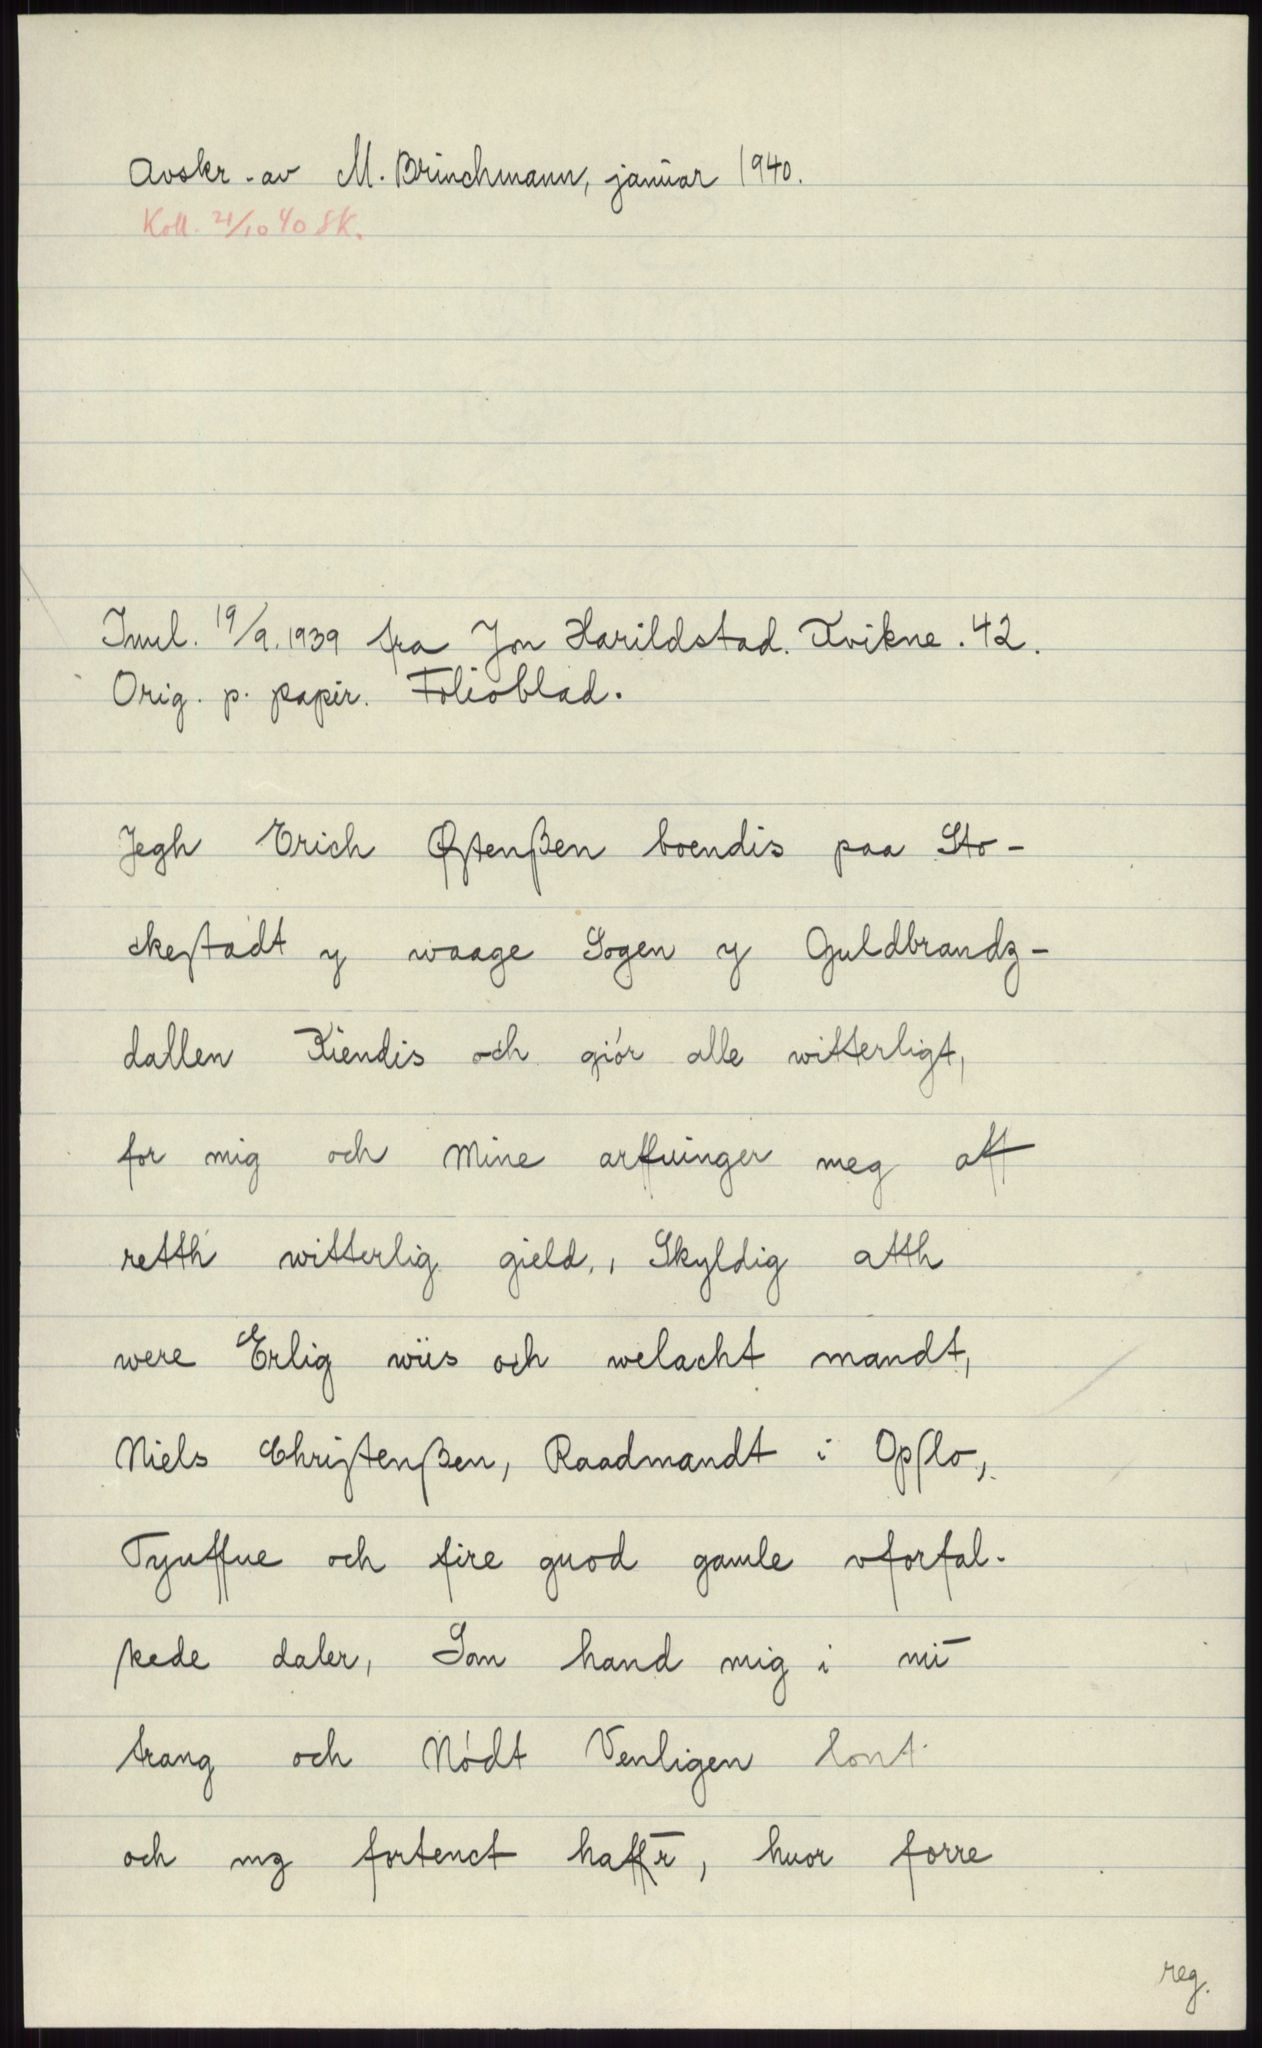 Avskr. av M. Brinchmann, januar 1940.
Koll. 21/10 40 SK.
Innl. 19/9.1939 fra Jon Harildstad. Kvikne. 42.
Orig. p. papir. Folioblad.
Jegh Erich Øſtenßen boendis paa Sto-
ckeſtadt y waage Sogen y Guldbrandz-
dallen Kiendis och giør alle witterligt,
for mig och Mine arffuinger meg aff
retth witterlig gield, Skyldig atth
were Erlig wiis och welacht mandt,
Niels Chriſtenßen, Raadmandt i Opſlo,
Tyuffue och fire guod gamle vforfal-
ſkede daler, Som hand mig i mī
trang och Nødt Venligen lont
och mg fortenct haffr̄, huor forre
reg.